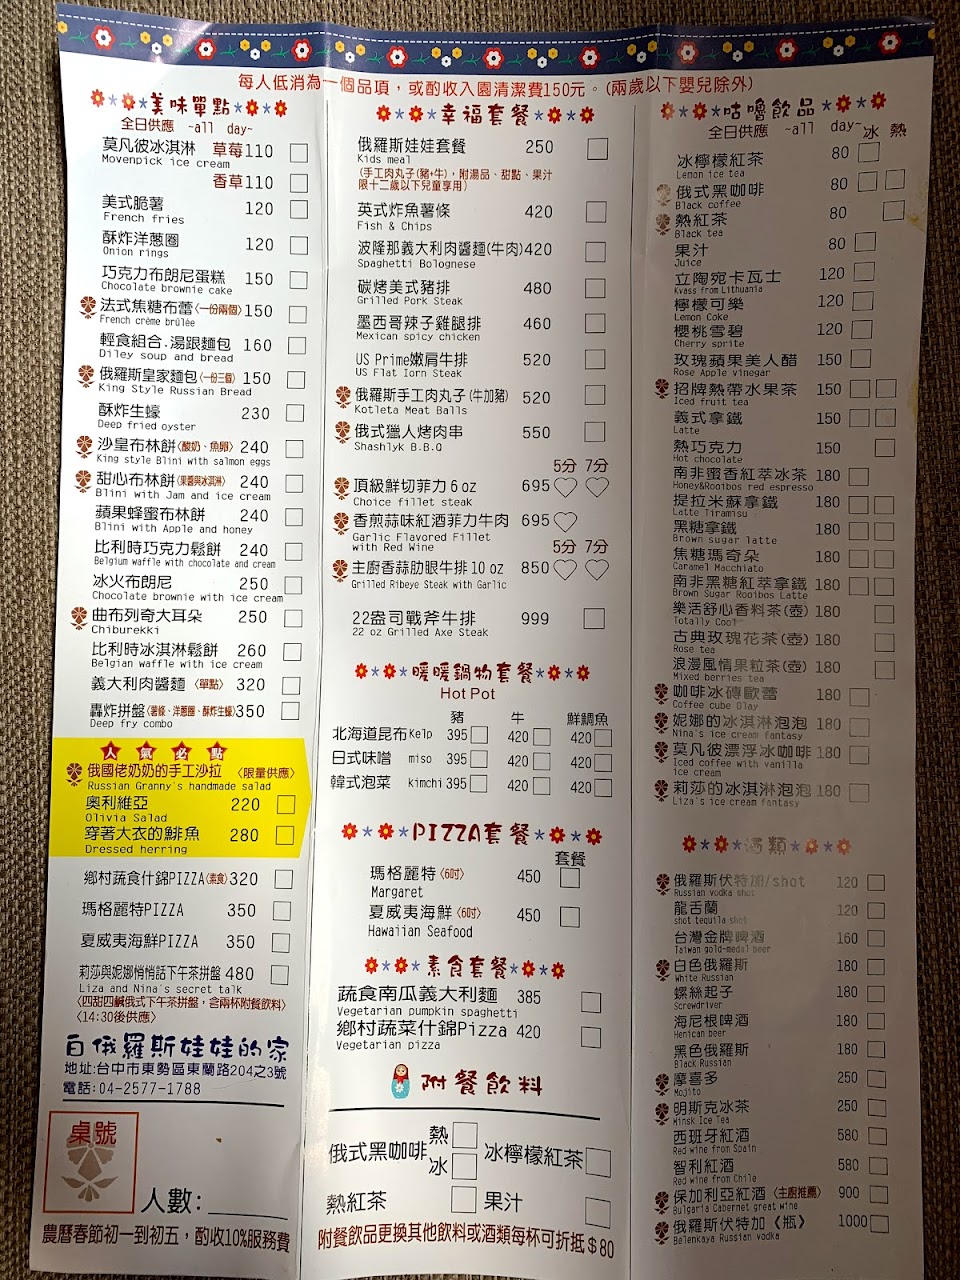 每人低消為一個品項，或酌收入園清潔費150元。(兩歲以下嬰兒除外)
美味單點
全日供應 ~all day~
莫凡彼冰淇淋 草莓110
Movenpick ice cream
香草110
美式脆薯 120
French fries
酥炸洋蔥圈 120
Onion rings
巧克力布朗尼蛋糕 150
Chocolate brownie cake
法式焦糖布蕾〈一份兩個〉150
French crème brûlée
輕食組合.湯跟麵包 160
Diley soup and bread
俄羅斯皇家麵包〈一份三個〉150
King Style Russian Bread
酥炸生蠔 230
Deep fried oyster
沙皇布林餅〈酸奶、魚卵〉240
King style Blini with salmon eggs
甜心布林餅〈果醬與冰淇淋〉240
Blini with Jam and ice cream
蘋果蜂蜜布林餅 240
Blini with Apple and honey
比利時巧克力鬆餅 240
Belgium waffle with chocolate and cream
冰火布朗尼 250
Chocolate brownie with ice cream
曲布列奇大耳朵 250
Chiburekki
比利時冰淇淋鬆餅 260
Belgian waffle with ice cream
義大利肉醬麵〈單點〉320
轟炸拼盤〈薯條、洋蔥圈、酥炸生蠔〉350
Deep fry combo
人氣必點
俄國佬奶奶的手工沙拉〈限量供應〉
Russian Granny's handmade salad
奧利維亞 220
Olivia Salad
穿著大衣的鯡魚 280
Dressed herring
鄉村蔬食什錦PIZZA〈素食〉320
瑪格麗特PIZZA 350
夏威夷海鮮PIZZA 350
莉莎與妮娜悄悄話下午茶拼盤 480
Liza and Nina's secret talk
〈四甜四鹹俄式下午茶拼盤，含兩杯附餐飲料〉
〈14:30後供應〉
白俄羅斯娃娃的家
地址:台中市東勢區東蘭路204之3號
電話:04-2577-1788
桌號
人數:
農曆春節初一到初五，酌收10%服務費
幸福套餐
俄羅斯娃娃套餐 250
Kids meal
(手工肉丸子(豬+牛)，附湯品、甜點、果汁
限十二歲以下兒童享用)
英式炸魚薯條 420
Fish & Chips
波隆那義大利肉醬麵(牛肉)420
Spaghetti Bolognese
碳烤美式豬排 480
Grilled Pork Steak
墨西哥辣子雞腿排 460
Mexican spicy chicken
US Prime嫩肩牛排 520
US Flat Iorn Steak
俄羅斯手工肉丸子(牛加豬) 520
Kotleta Meat Balls
俄式獵人烤肉串 550
Shashlyk B.B.Q
5分 7分
頂級鮮切菲力 6 oz 695
Choice fillet steak
香煎蒜味紅酒菲力牛肉 695
Garlic Flavored Fillet
with Red Wine 5分 7分
主廚香蒜肋眼牛排 10 oz 850
Grilled Ribeye Steak with Garlic
22盎司戰斧牛排 999
22 oz Grilled Axe Steak
暖暖鍋物套餐
Hot Pot
豬 牛 鮮鯛魚
北海道昆布Kelp 395 420 420
日式味噌 miso 395 420 420
韓式泡菜 kimchi 395 420 420
PIZZA套餐
套餐
瑪格麗特〈6吋〉 450
Margaret
夏威夷海鮮〈6吋〉 450
Hawaiian Seafood
素食套餐
蔬食南瓜義大利麵 385
Vegetarian pumpkin spaghetti
鄉村蔬菜什錦Pizza 420
Vegetarian pizza
附餐飲料
俄式黑咖啡 熱 冰 冰檸檬紅茶
熱紅茶 果汁
附餐飲品更換其他飲料或酒類每杯可折抵＄80
咕嚕飲品
全日供應 ~all day~ 冰 熱
冰檸檬紅茶 80
Lemon ice tea
俄式黑咖啡 80
Black coffee
熱紅茶 80
Black tea
果汁 80
Juice
立陶宛卡瓦士 120
Kvass from Lithuania
檸檬可樂 120
Lemon Coke
櫻桃雪碧 120
Cherry sprite
玫瑰蘋果美人醋 150
Rose Apple vinegar
招牌熱帶水果茶 150
Iced fruit tea
義式拿鐵 150
Latte
熱巧克力 150
Hot chocolate
南非蜜香紅萃冰茶 180
Honey&Rooibos red espresso
提拉米蘇拿鐵 180
Latte Tiramisu
黑糖拿鐵 180
Brown sugar latte
焦糖瑪奇朵 180
Caramel Macchiato
南非黑糖紅萃拿鐵 180
Brown Sugar Rooibos Latte
樂活舒心香料茶(壺) 180
Totally Cool
古典玫瑰花茶(壺) 180
Rose tea
浪漫風情果粒茶(壺) 180
Mixed berries tea
咖啡冰磚歐蕾 180
Coffee cube Olay
妮娜的冰淇淋泡泡 180
Nina's ice cream fantasy
莫凡彼漂浮冰咖啡 180
Iced coffee with vanilla
ice cream
莉莎的冰淇淋泡泡 180
Liza's ice cream fantasy
酒類
俄羅斯伏特加/shot 120
Russian vodka shot
龍舌蘭 120
shot tequila shot
台灣金牌啤酒 160
Taiwan gold-medal beer
白色俄羅斯 180
White Russian
螺絲起子 180
Screwdriver
海尼根啤酒 180
Henican beer
黑色俄羅斯 180
Black Russian
摩喜多 250
Mojito
明斯克冰茶 250
Minsk Ice Tea
西班牙紅酒 580
Red wine from Spain
智利紅酒 580
Red wine from Chile
保加利亞紅酒〈主廚推薦〉 900
Bulgaria Cabernet great wine
俄羅斯伏特加《瓶》 1000
Belenkaya Russian vodka